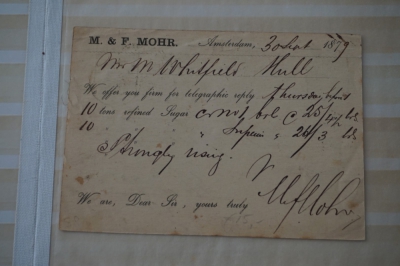 M. & F. MOHR. Amsterdam, 30 1879
Mr M Whitfield Hull
We offer you firm for telegraphic reply Thursday
10 tons refined Sugar 25/
10 " " Superior " 24/3
Strongly rising.
We are, Dear Sir, yours truly
M&F Mohr